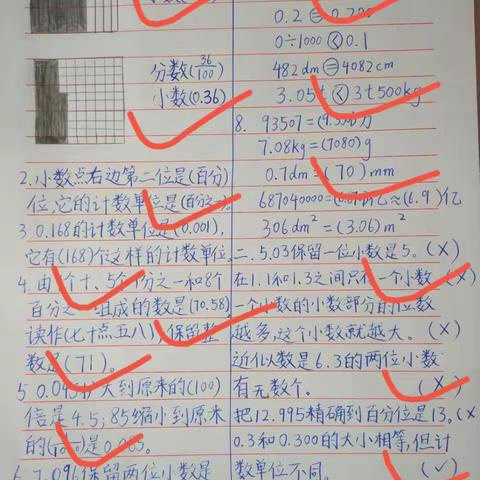 分数(36/100)
小数(0.36)
2.小数点右边第二位是(百分)
位,它的计数单位是(百分之一)。
3 0.168的计数单位是(0.001),
它有(168)个这样的计数单位。
4.由 个十、5个 分之一和8个
百分之一组成的数是(70.58),
读作(七十点五八),保留整
数是(71)。
5 0.045扩大到原来的(100)
倍是4.5;85缩小到原来
的 是0.085。
6 7.096保留两位小数是
0.2 = 0.200
0÷1000 < 0.1
482dm = 4082cm
3.05t < 3t500kg
8. 93507=(9.3507)万
7.08kg=(7080)g
0.1dm=(70)mm
687040000= 亿≈(6.9)亿
306dm²=(3.06)m²
二.5.03保留一位小数是5。(×)
在1.1和1.3之间只有一个小数 (×)
一个小数的小数部分的位数
越多,这个小数就越大。(×)
近似数是6.3的两位小数
有无数个。(×)
把12.995精确到百分位是13。(×
0.3和0.300的大小相等,但计
数单位不同。(√)